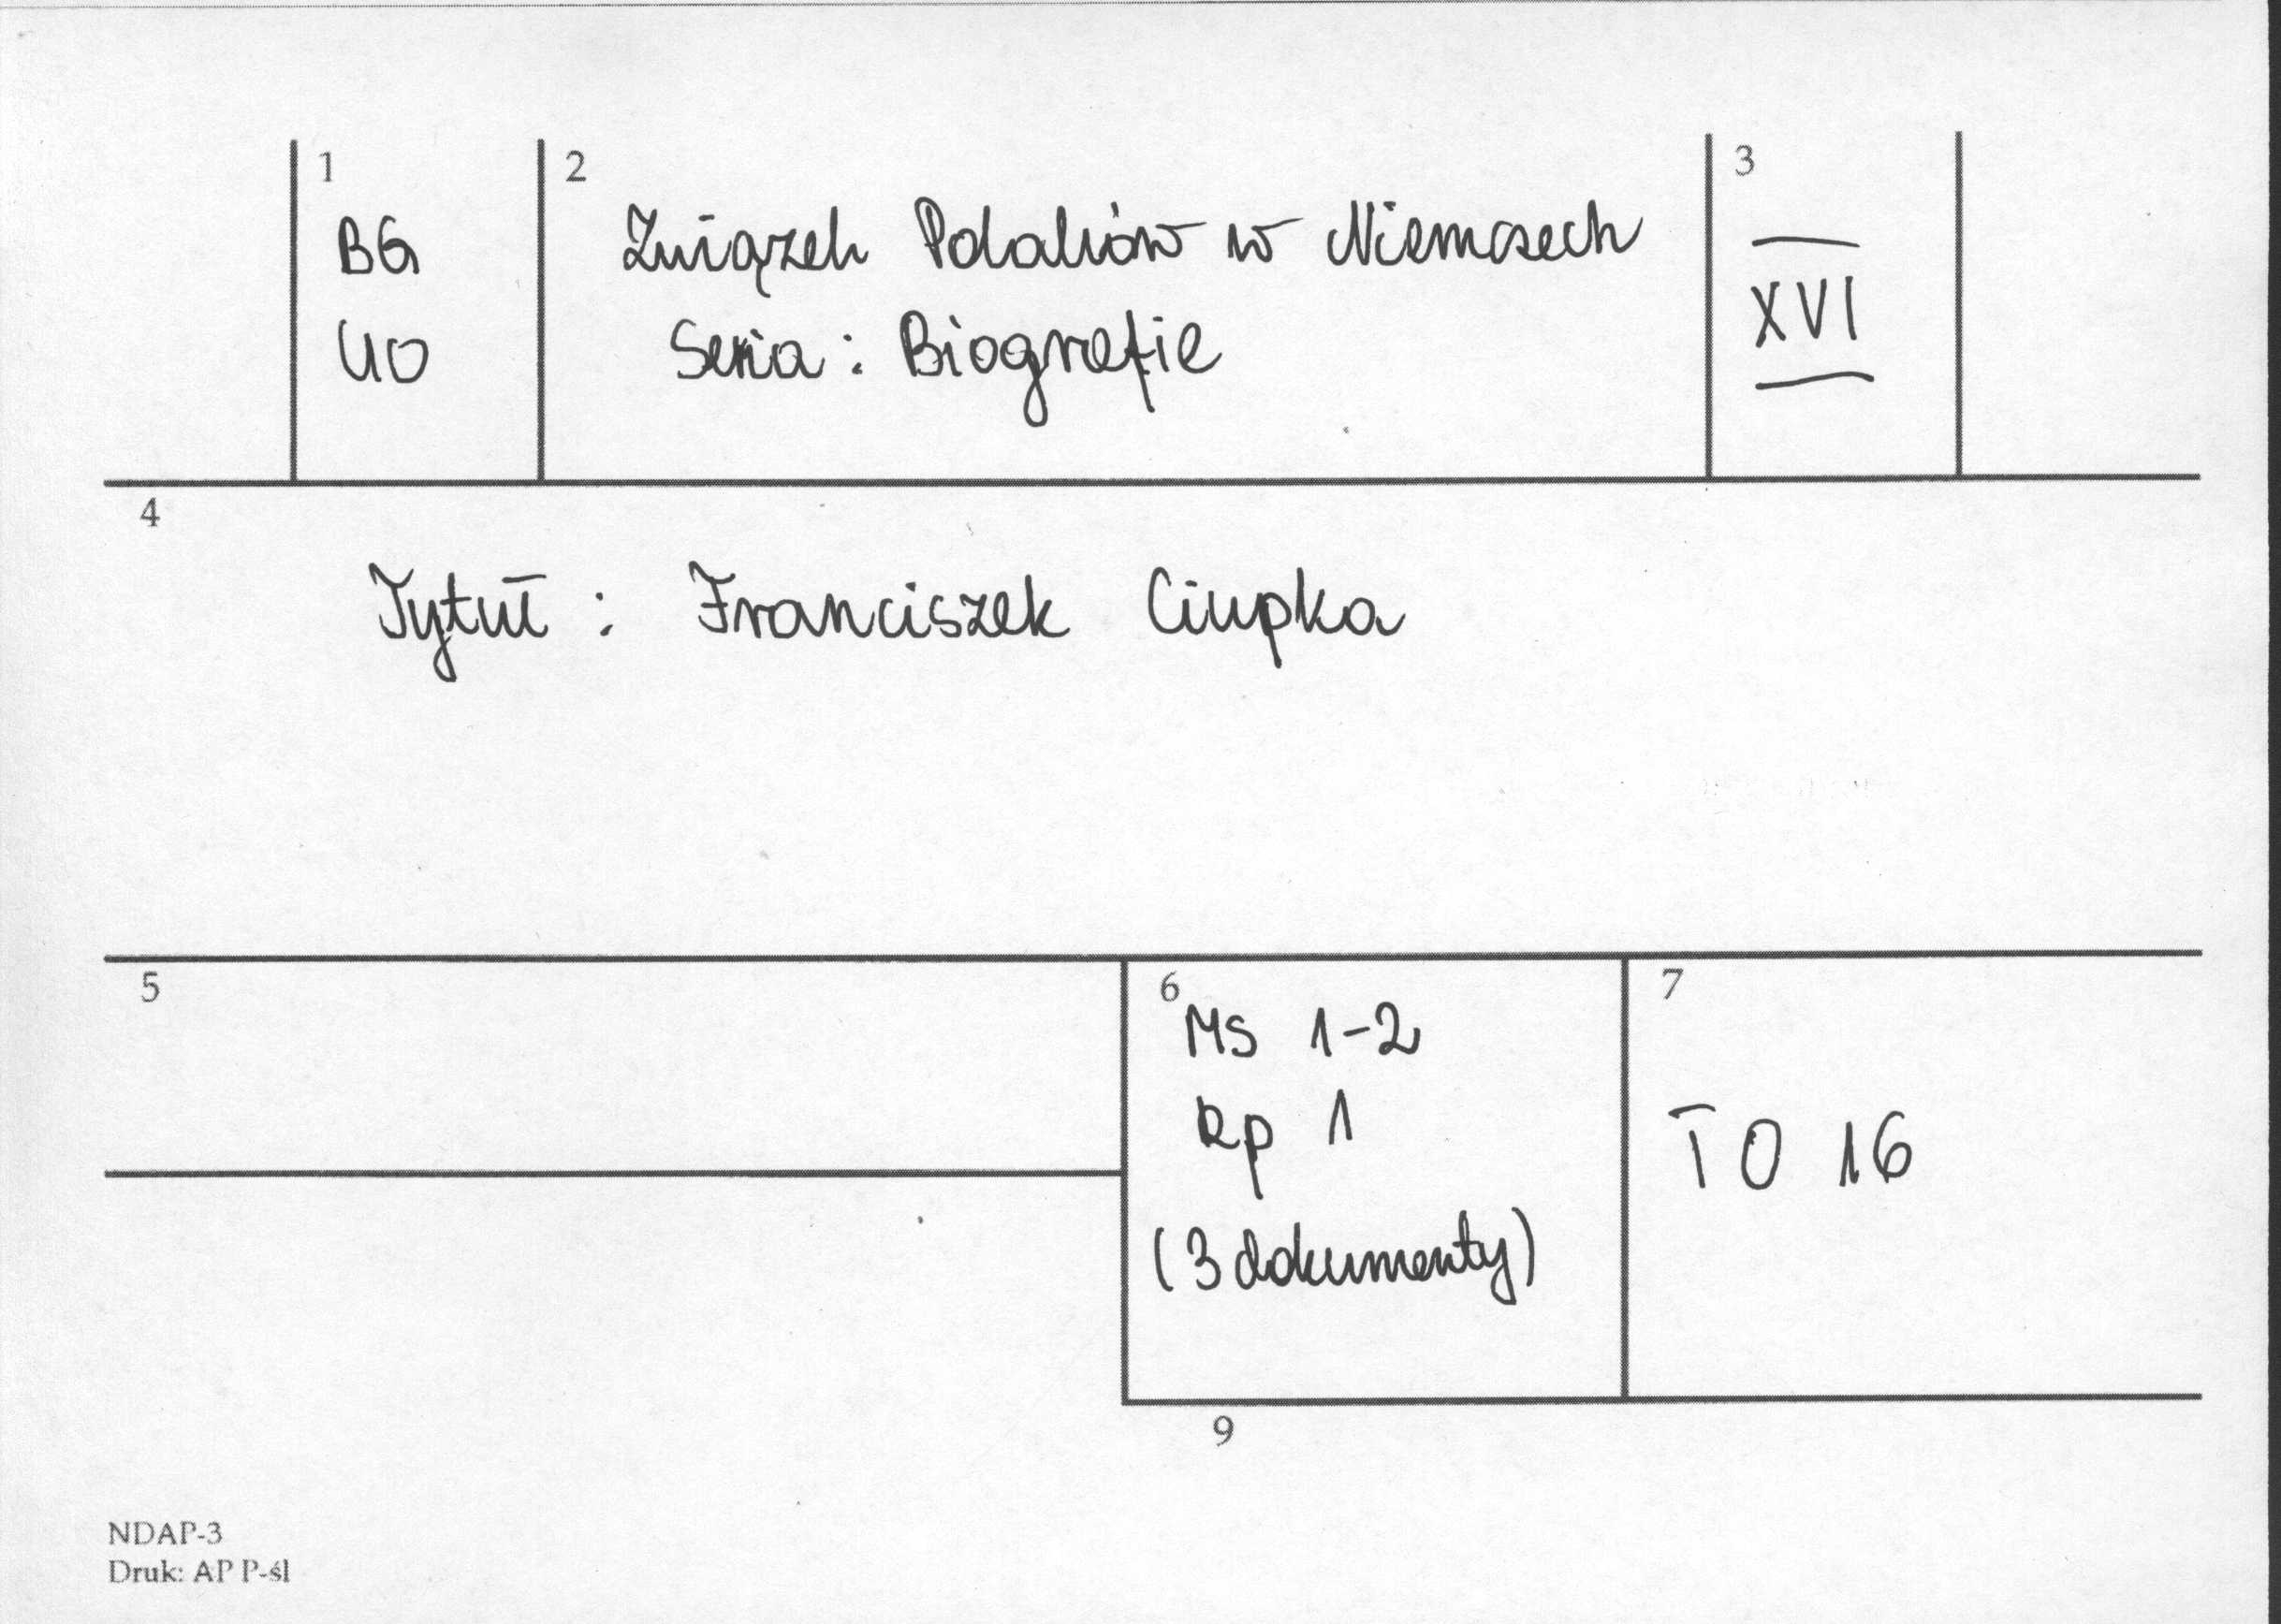 1
BG
UO
2
Związek Polaków w Niemczech
Seria: Biografie
3
XVI
4
Tytuł: Franciszek Ciupka
5
6
MS 1-2
Rp 1
(3 dokumenty)
7
TO 16
9
NDAP-3
Druk: AP P-śl